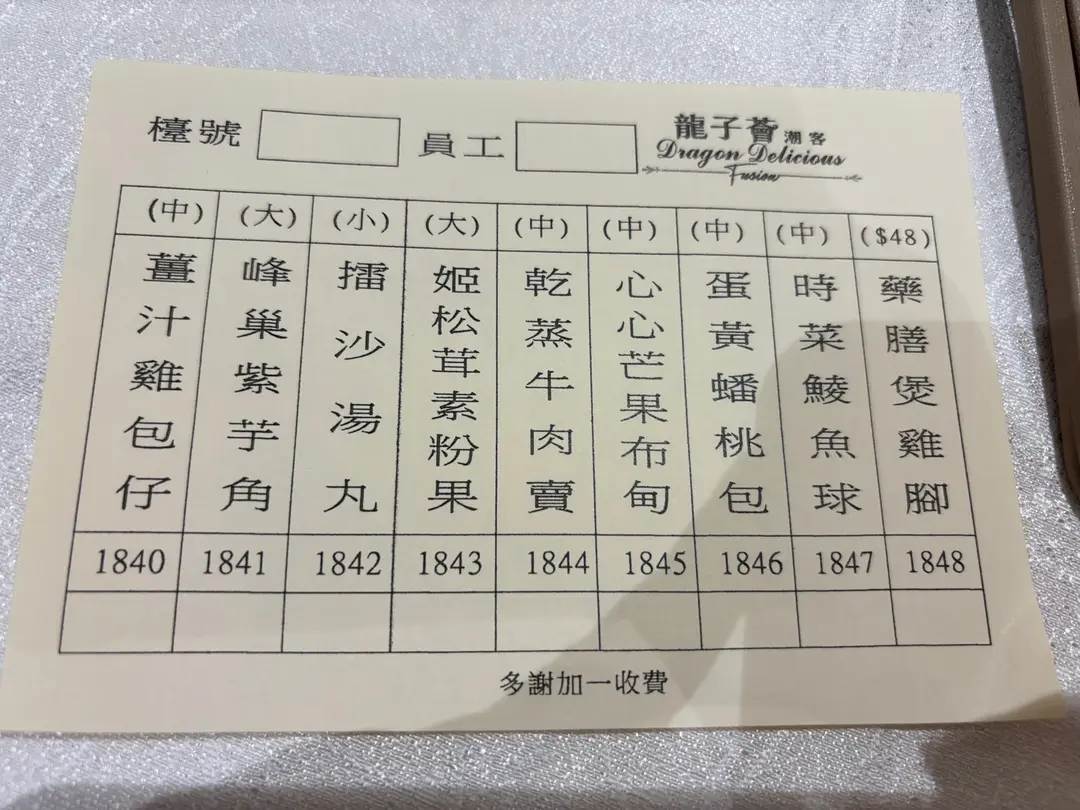 檯號 員工 龍子薈 潮客
Dragon Delicious
Fusion
(中) (大) (小) (大) (中) (中) (中) (中) ($48)
薑汁雞包仔
峰巢紫芋角
擂沙湯丸
姬松茸素粉果
乾蒸牛肉賣
心心芒果布甸
蛋黃蟠桃包
時菜鯪魚球
藥膳煲雞腳
1840 1841 1842 1843 1844 1845 1846 1847 1848
多謝加一收費